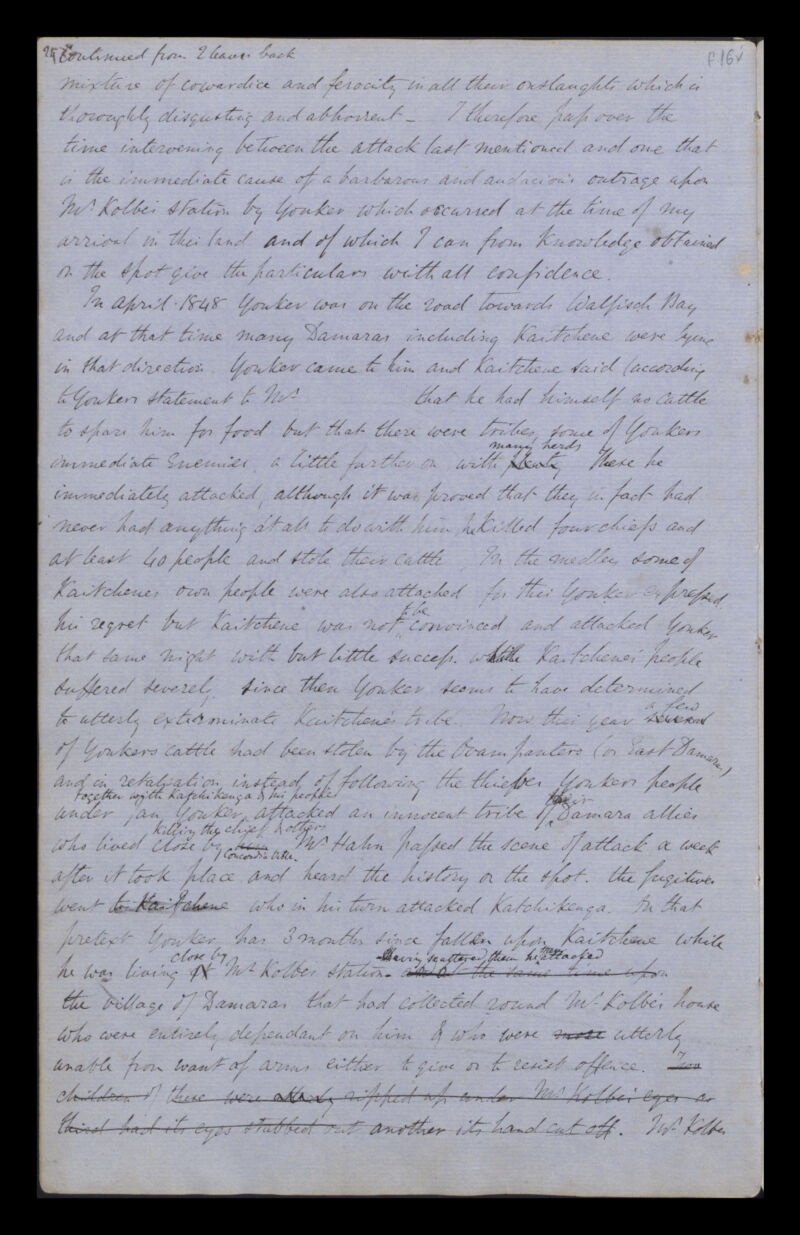 continued from 2 leaves back
f 16v
mixture of cowardice and ferocity in all their onslaughts which is
thoroughly disgusting and abhorrent - I therefore pass over the
time intervening between the attack last mentioned and one that
is the immediate cause of a barbarous and audacious outrage upon
Mr Kolbe's station by Yonker which occurred at the time of my
arrival in this land and of which I can from knowledge obtained
on the spot give the particulars with all confidence.
In april 1848 Yonker was on the road towards Walfisch Bay
and at that time many Damaras including Kaitchene were lying
in that direction. Yonker came to him and Kaitchene said (according
to Yonkers statement to Mr that he had himself no cattle
to spare him for food but that there were tribes, some of Yonkers
many herds
immediate Enemies, a little further on with plenty These he
immediately attacked, although it was proved that they in fact had
never had anything at all to do with him, he killed four chiefs and
at least 40 people and stole their cattle, In the medley some of
Kaitchenes own people were also attacked for this Yonker expressed
to be
his regret but Kaitchene was not convinced and attacked Yonker
that same night with but little success. while Kaitchene's people
suffered severely, since then Yonker seems to have determined
to utterly exterminate Kaitchene's tribe. Now this year several
a few
of Yonkers cattle had been stolen by the Ovampantieru (or East Damaras)
and in retaliation instead of following the thieves Yonkers people
together with Katchikenga & his people
under Jan Yonker attacked an innocent tribe of Damara allies
their
killing the chief & others
who lived close by Mr Hahn passed the scene of attack a week
after it took place and heard the history on the spot. the fugitives
went to Kaitchene who in his turn attacked Katchikenga. On that
pretext Yonker has 3 months since fallen upon Kaitchene while
close by having scattered them he then attacked
he was living at Mr Kolbe's station - and at the same time upon
the village of Damaras that had collected round Mr Kolbe's house
who were entirely dependant on him & who were more utterly
unable from want of arms either to give or to resist offence. Two
children of these were ripped up under Mr Kolbe's eyes a
third had its eyes stabbed out another its hand cut off. Mr Kolbe